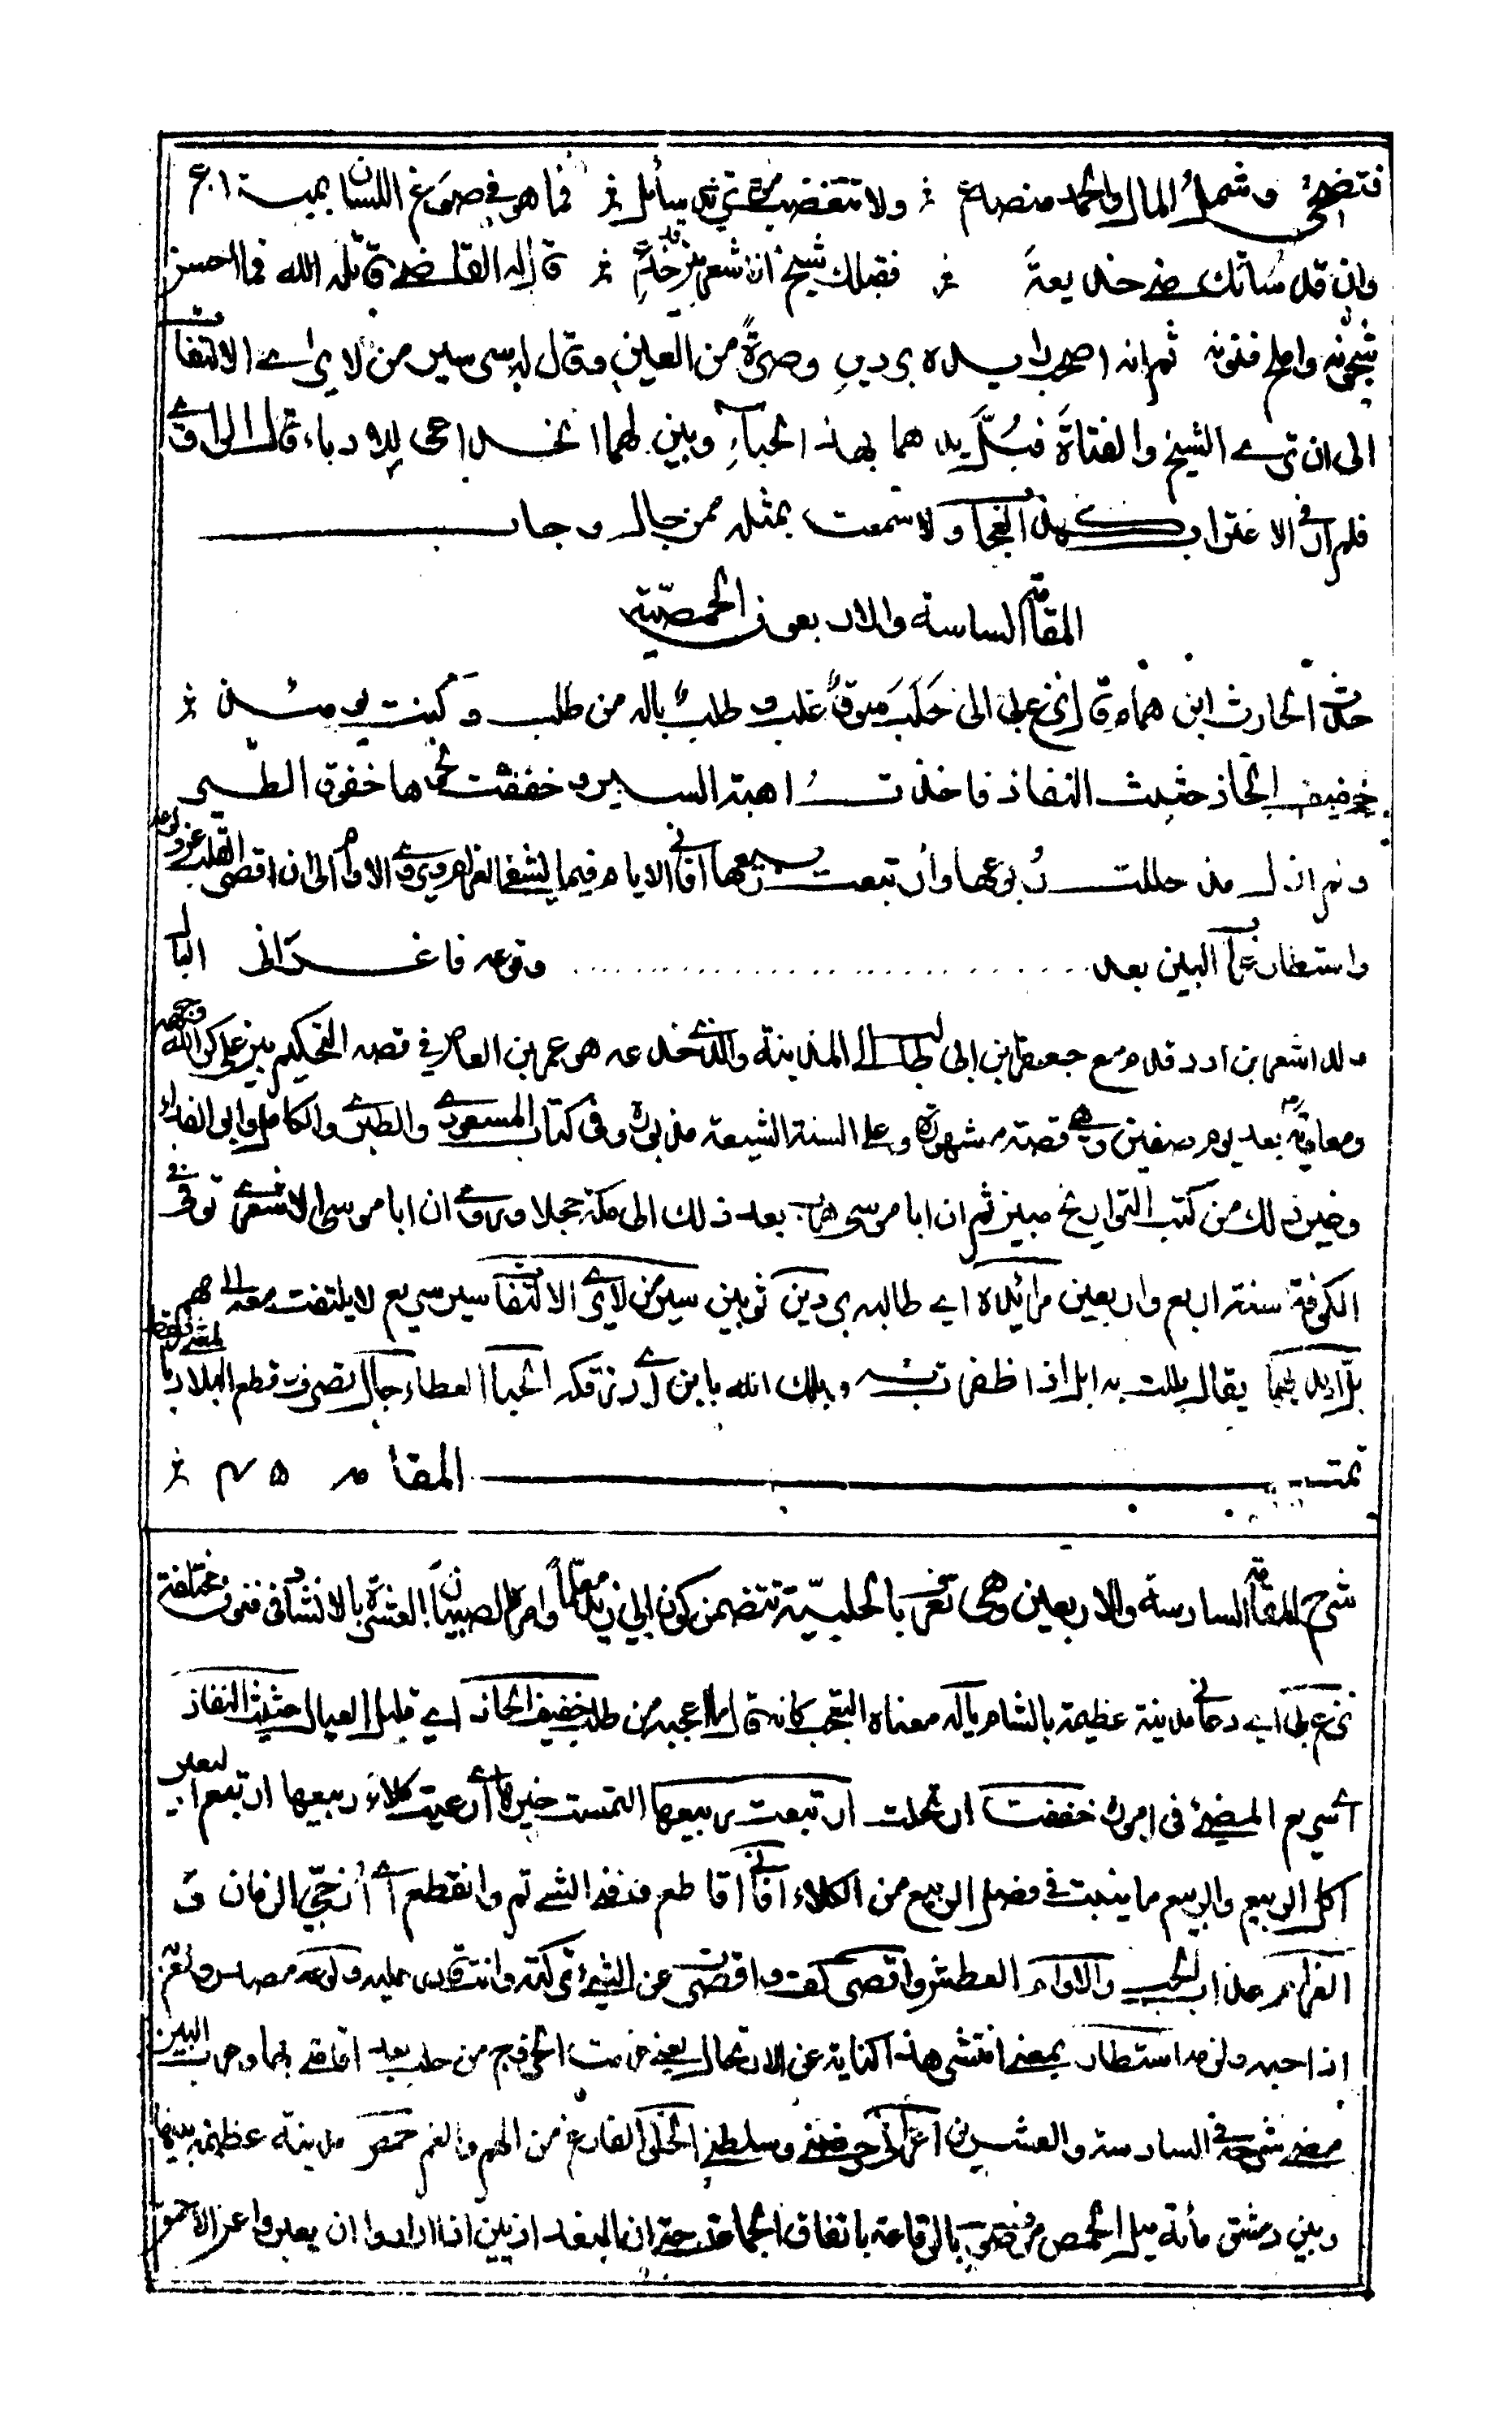 فتضحى وشمل المال والحمد منصدع ؞ ولا تتغضب من تزيد سائل ؞ فما هو في صوغ اللسان بمبتدع
وان قد ساتك مني خديعة ؞ فقبلك شيخ الاشعريين قد خدع ؞ قال له القاضي قاتله الله فما احسن
شجونه واملح فنونه ثم انه اصحب رايده بردين وصرة من العين وقال له سر سير من لا يرى الالتفات
الى ان ترى الشيخ والفتاة فبل يديهما بهذا الحباء وبين لهما انخداعي للادباء قال الراوي
فلم ار في الاغتراب كهذا العجاب ولا سمعت بمثله ممن جال وجاب
المقامة الساسة والاربعون الحمصية
حدث الحارث ابن همام قال نزع بي الى حلب شوق غلب وطلب ياله من طلب وكنت يومئذ ؞
خفيف الحاذ حثيث النفاذ فاخذت اهبة السير وخففت نحوها خفوق الطير
ولم ازل مذ حللت ربوعها وارتبعت ربيعها افاني الايام فيما يشفي الغرام ويروي الاوام الى ان اقصر القلب عن ولوعه
واستطار غراب البين بعد وقوعه فاغراني البال
ولد اشعر بن ادد قدم مع جعفر ابن ابي طالب الى المدينة والذي خدعه هو عمر بن العاص في قصة التحكيم بين علي كرم الله وجهه
ومعاوية بعد يوم صفين وهي قصة مشهورة وعلى السنة الشيعة مذبورة وفي كتاب المسعودي والطبري والكامل وابي الفداء
وغير ذلك من كتب التواريخ مبين ثم ان ابا موسى هرب بعد ذلك الى مكة خجلا وروي ان ابا موسى الاشعري توفي في
الكوفة سنة اربع واربعين رايده اي طالبه بردين ثوبين سير من لا يرى الالتفات سير سريع لا يلتفت معه الى
بل يديهما يقال بللت به ابل اذا ظفرت به وبلك الله بابن اي رزقكه الحبا العطاء جال تصرف وقطع البلاد
تمت المقامه ٤٥ ؞
شرح المقامة السادسة والاربعين وهي تعرف بالحلبية تتضمن كون ابي زيد معلما وامره الصبيان العشرة بالانشاد في فنون مختلفة
نزع بي اي دعاني مدينة عظيمة بالشام ياله معناه التعجب كانه قال ما اعجبه من طلب خفيف الحاذ اي قليل العيال حثيث النفاذ
اي سريع المضي في اموره خففت ارتحلت ارتبعت ربيعها التمست خيرها اي رعيت كلاء ربيعها ارتبع البعير
اكل الربيع والربيع ما ينبت في فصل الربيع من الكلاء افاني اقاطع من فني الشي تم وانقطع اي ازجي الزمان و
الغرام عذاب الحب والاوام العطش واقصر كفت واقصرت عن الشيء تركته وانت قادر عليه ولوعه مصدر ولع به
اذا احبه ولزمه استطار بمعنى انتشر هذا كناية عن الارتحال يعني عزمت الخروج من حلب بعد اقامتي بها وغراب البين
مضى شرحه في السادسة والعشرين اغراني حرضني وسلطني الخلي الفارغ من الهم والغم حمص مدينة عظيمة بينها
وبين دمشق مأة ميل الحمص موصوفون بالرقاعة باتفاق الجماعة حتى ان البغداذيين اذا ارادوا ان يعبروا عن الاحمق